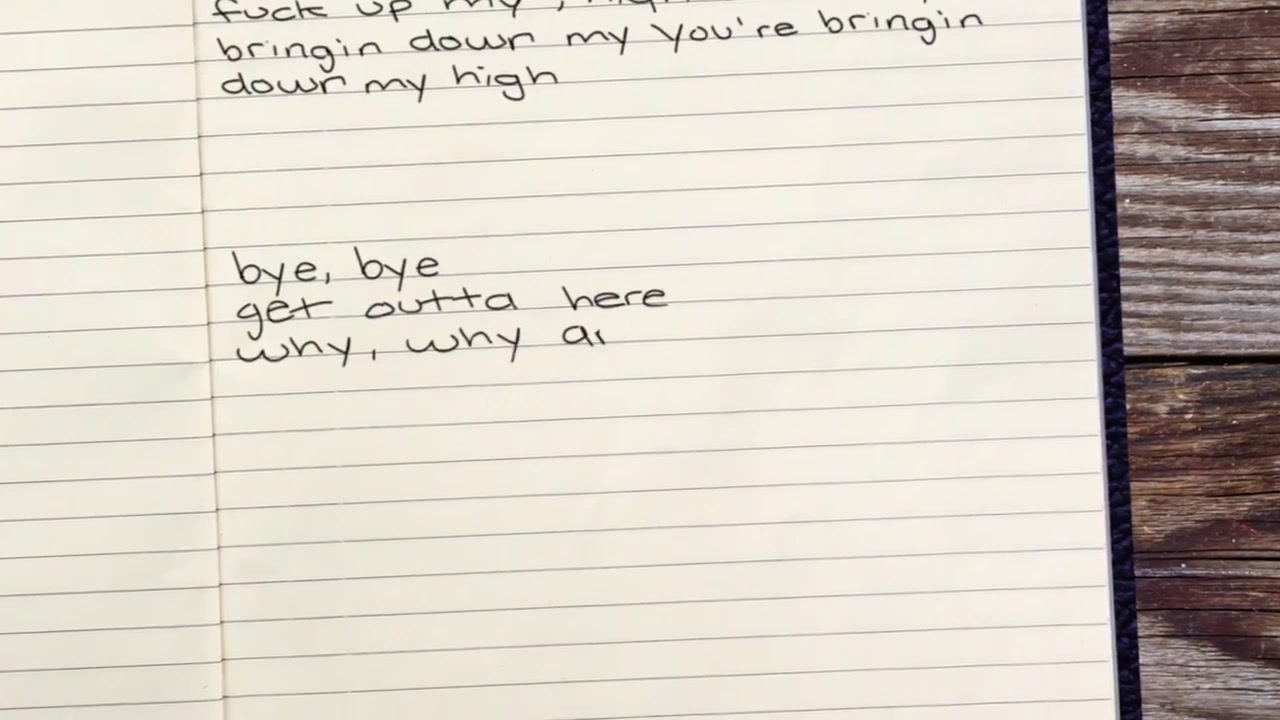 fuck up my
bringin down my you're bringin
down my high
bye, bye
get outta here
why, why